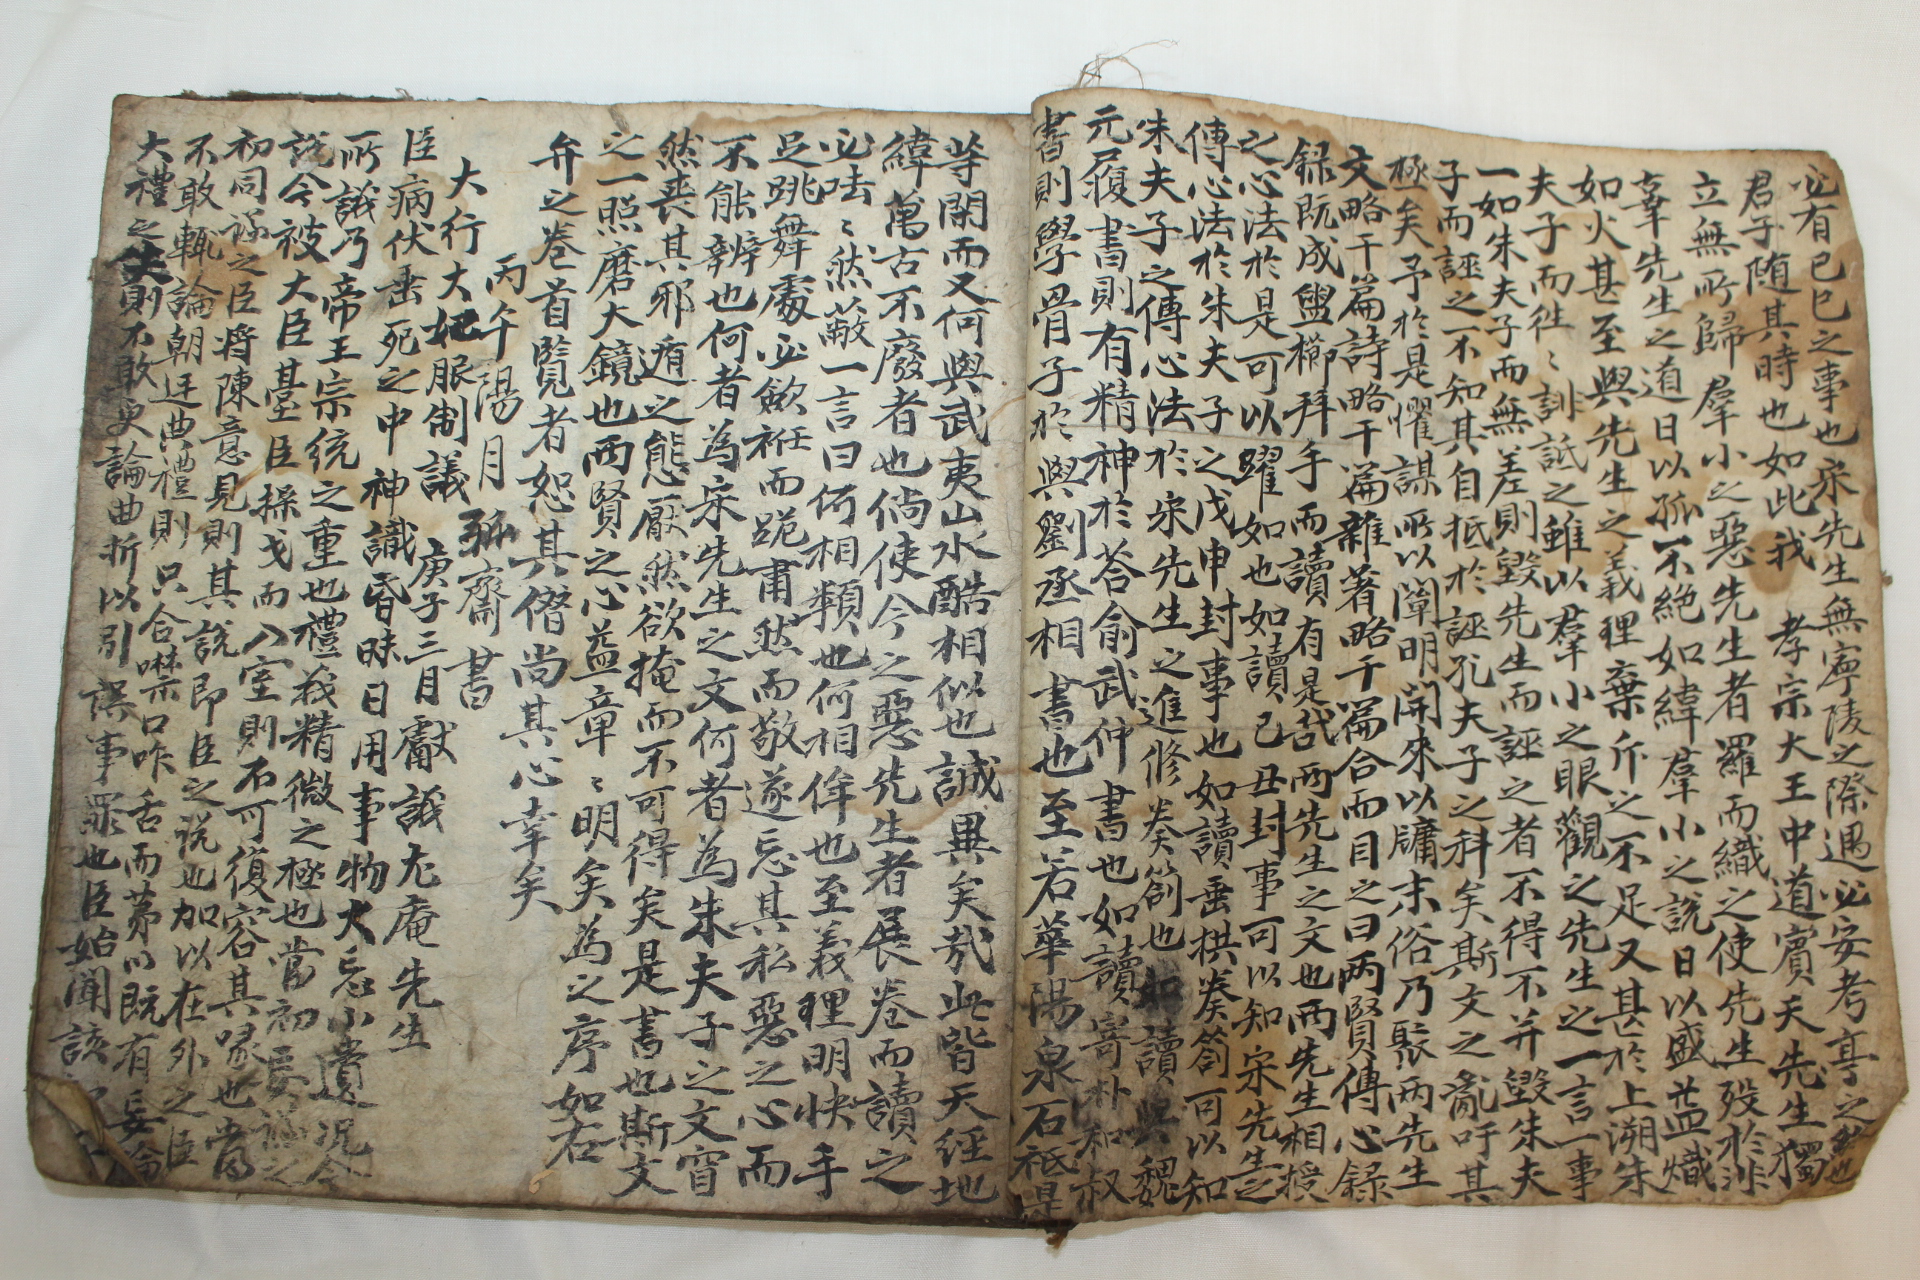 必有已巳之事也宋先生無寧陵之際遇必安考亭之
君子隨其時也如此我 孝宗大王中道賓天先生獨
立無所歸羣小之惡先生者羅而織之使先生歿於非
辜先生之道日以孤不絶如緯羣小之說日以盛益熾
如火甚至與先生之義理棄斥之不足又甚於上溯朱
夫子而徃〻訓詆之雖以羣小之眼觀之先生之一言一事
一如朱夫子而無差則毀先生而誣之者不得不并毀朱夫
子而誣之不知其自抵於誣孔夫子之科矣斯文之亂吁其
極矣予於是懼謀所以闡明開來以牖末俗乃聚兩先生
文略干篇詩略干篇雜著略干篇合而目之曰兩賢傳心錄
錄旣成盥櫛拜手而讀有是哉兩先生之文也兩先生相授
之心法於是可以躍如也如讀己丑封事可以知宋先生之
傳心法於朱夫子之戊申封事也如讀垂拱奏箚可以知
朱夫子之傳心法於宋先生之進修奏箚也如讀與魏
元履書則有精神於答俞武仲書也如讀寄朴和叔
書則學骨子於與劉丞相書也至若華陽泉石秪是
等閑而又何與武夷山水酷相似也誠異矣哉此皆天經地
緯萬古不廢者也倘使今之惡先生者展卷而讀之
必呿〻然蔽一言曰何相類也何相侔也至義理明快手
足跳舞處必歛袵而跪肅然而敬遂忘其私惡之心而
不能辨也何者爲宋先生之文何者爲朱夫子之文窅
然喪其邪遁之態厭然欲掩而不可得矣是書也斯文
之一照磨大鏡也兩賢之心益章〻明矣爲之序如右
弁之卷首覽者恕其僭尚其心幸矣
丙午陽月 孤齋書
大行大妃服制議 庚子三月獻議尤庵先生
臣病伏垂死之中神識昏昧日用事物大忘小遺況今
所議乃帝王宗統之重也禮義精微之極也當初妄議之
說今被大臣臺臣操戈而入室則不可復容其喙也當
初同議之臣將陳意見則其說卽臣之說也加以在外之臣
不敢輒論朝廷典禮則只合噤口咋舌而第以旣有妄論
大禮之失則不敢更論曲折以引誤事罪也臣始聞該